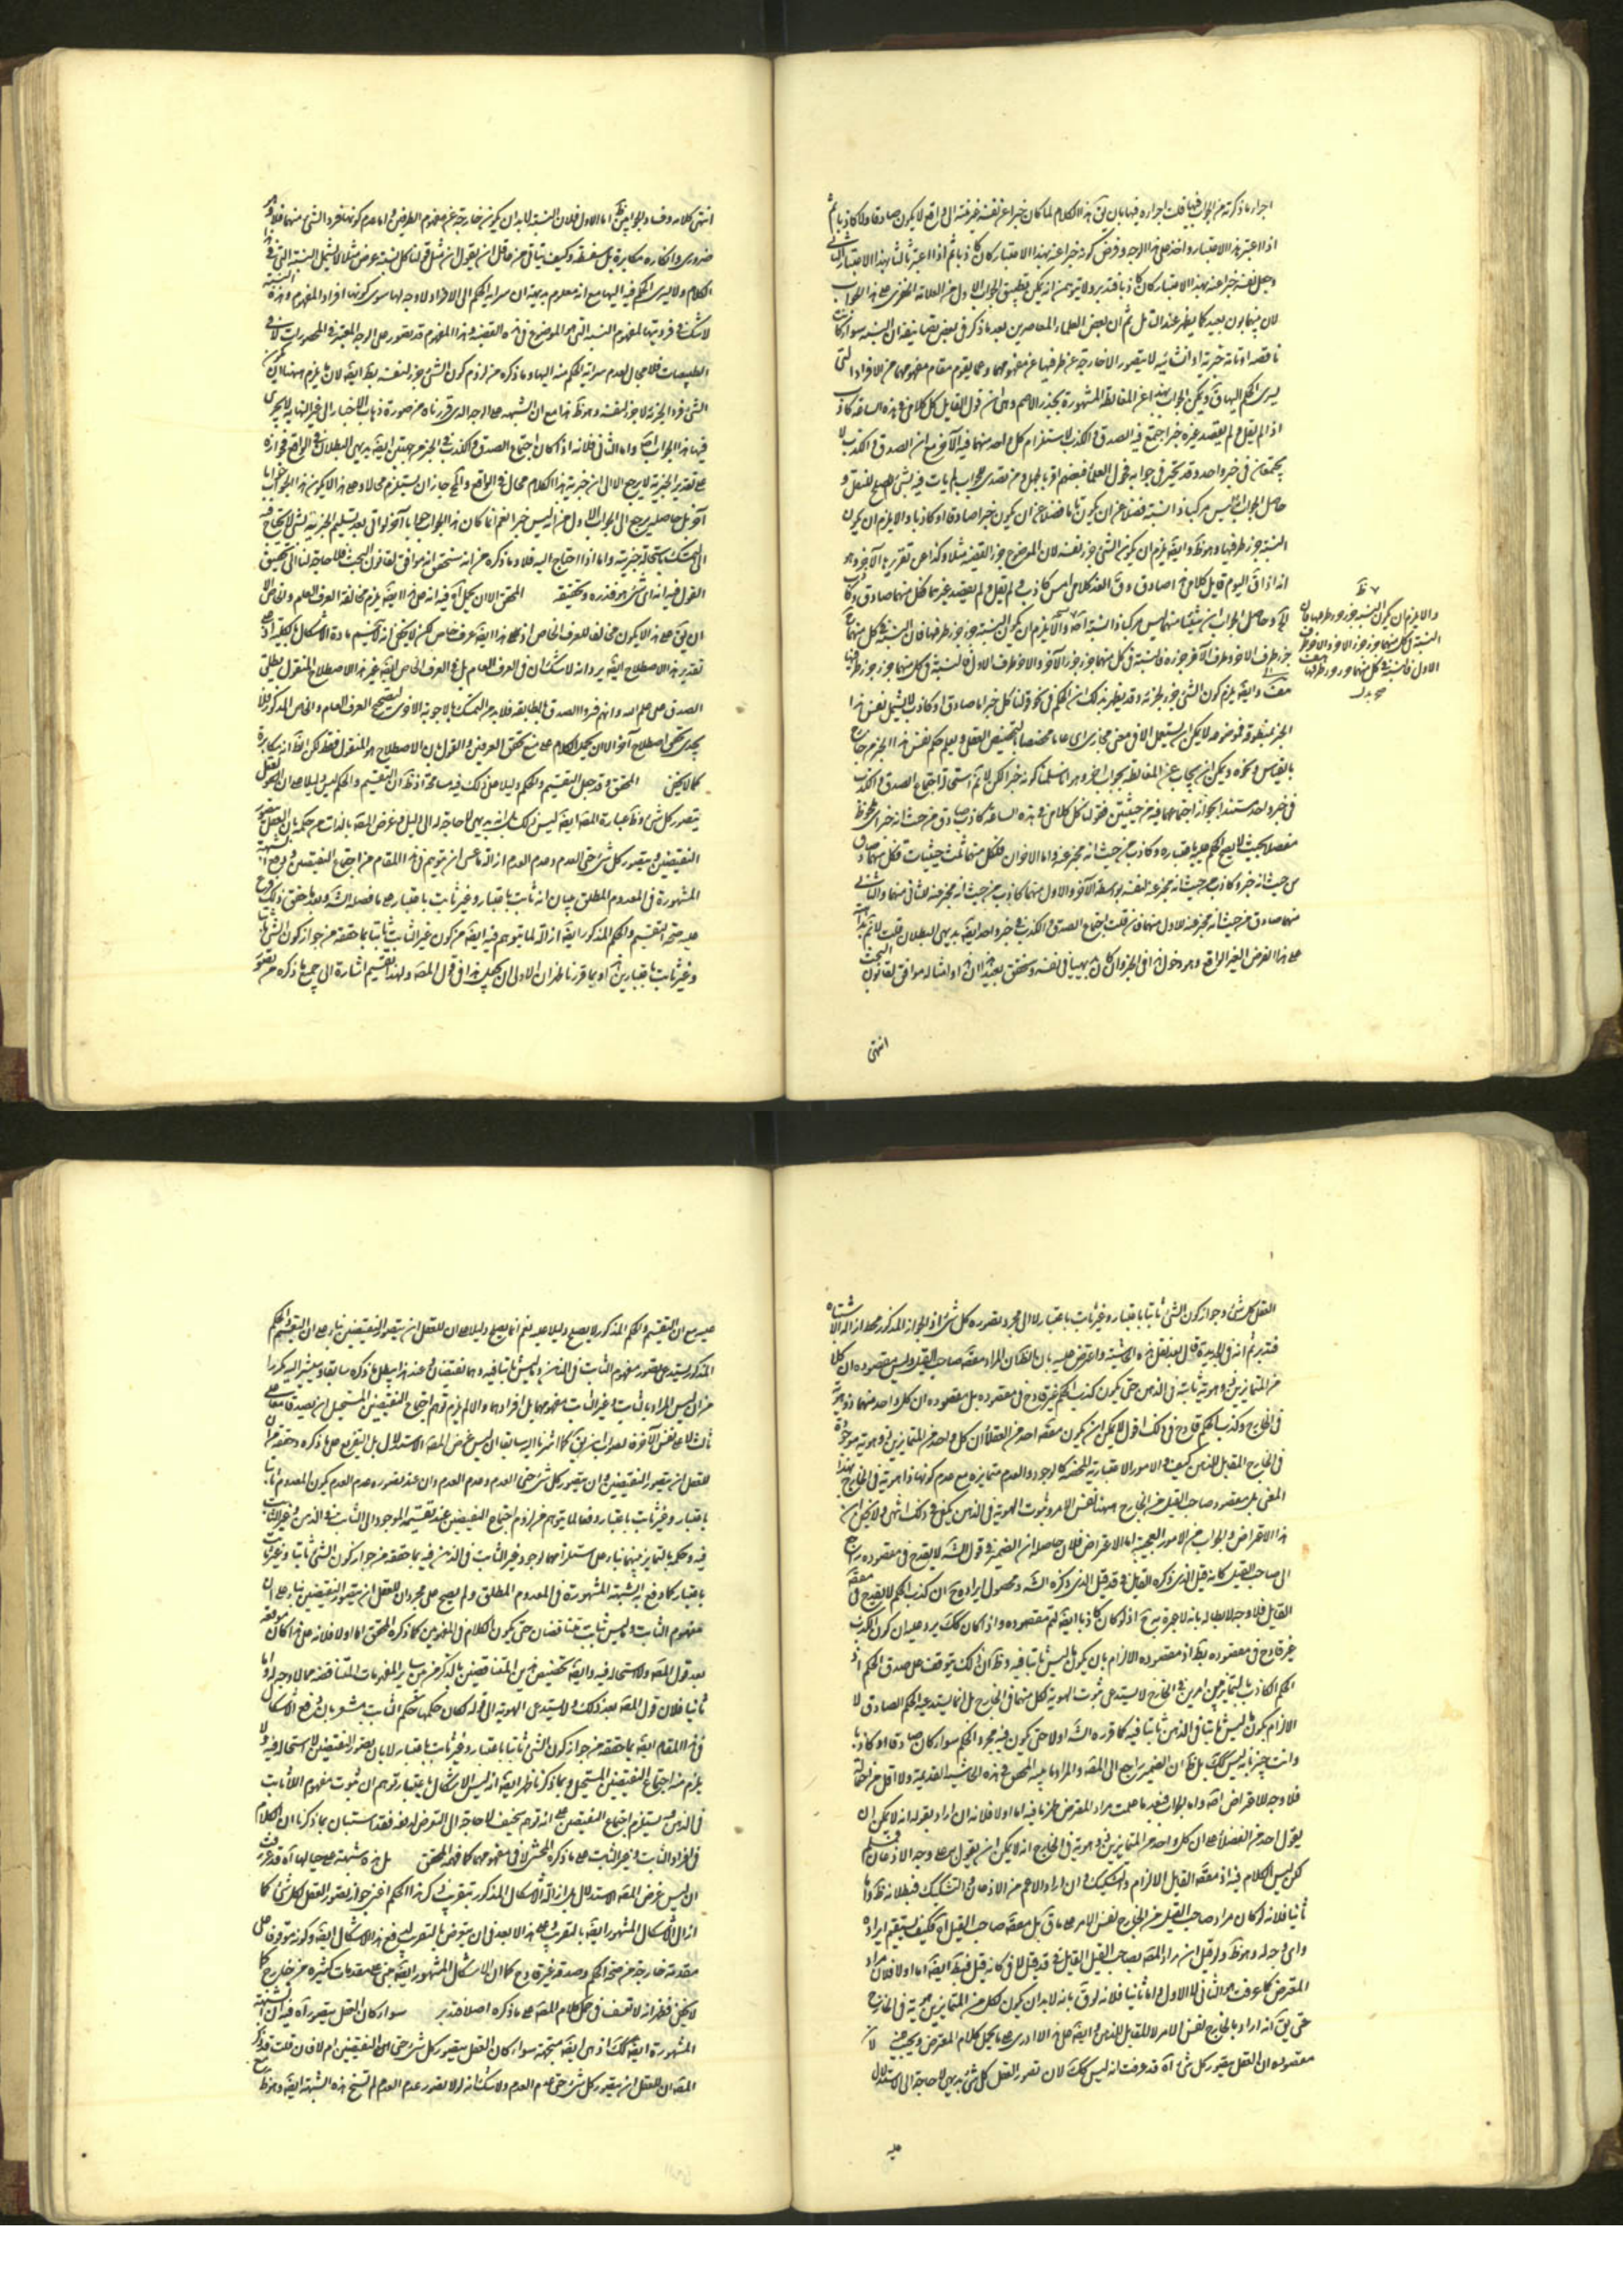 اجراء ما ذكرته من الجواب فيها قلت اجراءه فيها بان يق هذا الكلام لما كان خبرا عن نفسه لا يكون صادقا ولا كاذبا ثم
اذا اعتبر هذا الاعتبار واخذ على هذا الوجه وفرض كونه خبرا عنه بهذا الاعتبار كان كاذبا ثم اذا اعتبر ثالثا بهذا الاعتبار الثاني
وجعل نفسه خبرا عنه بهذا الاعتبار كان كاذبا فتدبر ولا يتوهمن انه يمكن تطبيق الجواب الاول من العلامة على هذا الجواب
لان بينهما بون بعيد كما يظهر عند التامل ثم ان بعض العلماء المعاصرين بعد ما ذكر في بعض تصانيفه ان النسبة سواء كانت
ناقصة او تامة خبرية او انشائية لا يتصور الا خارجة عن طرفيها عن مفهومهما وعما يقوم مقام مفهومهما من الافراد التي
يسرى الحكم اليها ق ويمكن الجواب بهذا عن المغالطة المشهورة بجذر الاصم وهى ان قول القايل كل كلامى في هذه الساعة كاذب
اذا لم يقل ولم يقصد غيره خبرا اجتمع فيه الصدق والكذب لاستلزام كل واحد منهما فيه الآخر مع ان الصدق والكذب لا
يجتمعان في خبر واحد وقد تحير في جوابه فحول العلماء فبعضهم اقر بالعجز ومن تصدى لجوابه لم يات فيه بشئ يصلح للنقل و
حاصل الجواب انه ليس مركبا ذا نسبة فضلا عن ان يكون تاما فضلا عن ان يكون خبرا صادقا او كاذبا والا يلزم ان يكون
النسبة جزء طرفيها وهو ظ وايضا يلزم ان يكون الشئ جزء لنفسه لان الموضوع جزء القضية مثلا وكذا على تقريرها الآخر وهو
انه اذا ق اليوم قايل كلامى غدا صادق وق الغد كلامى امس كاذب ولم يقل ولم يقصد غيرهما فكل منهما صادق وكاذب
جزء طرف الآخر وطرف الآخر جزؤه فالنسبة في كل منهما جزء جزء الآخر والآخر طرف الاول فالنسبة في كل منهما جزء جزء طرفها
هف وايضا يلزم كون الشئ جزء لجزئه وقد يظهر بذلك ان الحكم في نحو قولنا كل خبر اما صادق او كاذب لا يشمل نفس هذا
بالقياس ونحوه ويمكن ان يجاب عن المغالطة بجواب آخر وهو انا سلمنا كونه خبرا لكن لا نم استحالة اجتماع الصدق والكذب
في خبر واحد مستندا بجواز اجتماعهما فيه من حيثيتين فقولنا كل كلامى في هذه الساعة كاذب صادق من حيث انه خبر
منهما صادق من حيث انه مخبر عنه للاول منهما فان قلت اجتماع الصدق والكذب في خبر واحد ايضا بديهى البطلان قلت لا نم بداهته
على هذا الفرض الغير الواقع وهو دخول هذا في الخبر وان كان بديهيا في نفسه وتحقق بعيد هذا ان هذا وامثاله موافق لقانون البحث
انتهى
ظ
والا يلزم ان يكون النسبة جزء جزء طرفيها فان
النسبة في كل منهما جزء جزء الآخر والآخر طرف
الاول فالنسبة في كل منهما جزء جزء طرفها
صح بدل
انتهى كلامه وفساد الجوابين ظ اما الاول فلان النسبة لا بد ان يكون خارجة عن مفهوم الطرفين واما عدم كونها فردا لشئ منهما فلا
ضرورى وانكاره مكابرة بل سفسطة وكيف يتاتى من عاقل ان يقول ان مثل قولنا كل نسبة عرض مثلا لا يشمل النسبة التي في هذا
الكلام ولا يسرى الحكم فيه اليها مع انه معلوم بديهة ان سراية الحكم الى الافراد لا وجه لها سوى كونها افراد المفهوم وهذه النسبة
لا شك في فرديتها لمفهوم النسبة التي هو الموضوع في هذه القضية وهذا المفهوم قد تصور على الوجه المعتبر في المحصورات لا في
الطبيعيات فلا مجال لعدم سراية الحكم منه اليها وما ذكره من لزوم كون الشئ جزء لنفسه بط ايضا لان ما يلزم ههنا
الشئ فرد الجزئه لا جزء لنفسه وهو ظ هذا مع ان الشبهة على الوجه الذى قررناه من صورة ذهاب الاخبار الى غير النهاية لا يجرى
فيها هذا الجواب ايضا واما الثانى فلانه اذا كان اجتماع الصدق والكذب في الخبر من جهتين ايضا بديهى البطلان في الواقع فجوازه
على تقدير الخبرية لا يرجع الا الى ان خبرية هذا الكلام محال في الواقع والمحال جاز ان يستلزم محالا وعلى هذا لا يكون هذا الجواب جوابا
آخر بل حاصله يرجع الى الجواب الاول من انه ليس خبرا نعم انما كان هذا الجواب جوابا آخر لو اتى بعد تسليم الخبرية بشئ لا يحتاج فيه
الى التمسك باستحالة خبريته واما اذا احتاج اليه فلا وما ذكره من انه ستحقق انه موافق لقانون البحث فلا حاجة لنا الى تحقيق
القول فيه انه اى شئ هو فتدبره وتحقيقه المحقق الا ان يحمل آه فيه انه على هذا ايضا يلزم مخالفة العرف العام والخاص الا
ان يق على هذا لا يكون مخالفا للعرف الخاص اذ على هذا ايضا عرف خاص لكن لا يخفى انه لا ينحسم مادة الاشكال بالكلية اذ على
تقدير هذا الاصطلاح ايضا يرد انه لا شك ان في العرف العام بل في العرف الخاص ايضا غير هذا الاصطلاح المنقول يطلق
الصدق على علم الله وانهم فسروا الصدق بالمطابقة فلا بد من التمسك بالاجوبة الاخرى لتصحيح العرف العام والخاص المذكور فلا
يجدى تحقق اصطلاح آخر الا ان يحمل الكلام على منع تحقق العرفين والقول بان الاصطلاح هو المنقول فقط لكن الظ انه مكابرة
كما لا يخفى المحقق وقد جعل التقسيم والحكم دليلا على ذلك فيه مسامحة اذ ظ ان التقسيم والحكم ليس دليلا على ان العقل
يتصور كل شئ وظ عبارة المصنف ايضا ليس ذلك بل انه بديهى لا حاجة له الى دليل وغرض المصنف بالذات من حكمه بان العقل يتصور
النقيضين ويتصور كل شئ حتى العدم وعدم العدم ازالة ما عسى ان يتوهم في هذا المقام من اجتماع النقيضين ودفع الشبهة
المشهورة في المعدوم المطلق ببيان انه ثابت باعتبار وغير ثابت باعتبار على ما فصله الشه وبعد ما حقق ذلك فرع
عليه صحة التقسيم والحكم المذكور ايضا ازالة لما يتوهم فيه ايضا من كون غير الثابت ثابتا بما حققه من جواز كون الشئ ثابتا
وغير ثابت باعتبارين هذا وبما قررنا ظهر ان الاولى ان يجعل هذا في قول المصنف ولهذا نقسم اشارة الى جميع ما ذكره من تصور
العقل كل شئ وجواز كون الشئ ثابتا باعتبار وغير ثابت باعتبار لا الى مجرد تصوره كل شئ اذ الجواز المذكور محط ازالة الاشتباه
فتدبر ثم انه في الجديدة قال بعد نقل هذه الحاشية واعترض عليه بان الظ ان المراد مقصود صاحب القيل وليس مقصوده ان كلا
من المتمايزين ذو هوية ثابتة في الذهن حتى يكون كذب الحكم غير قادح في مقصوده بل مقصوده ان كل واحد منهما ذو هوية
في الخارج وكذب الحكم قادح في ذلك اقول لا يمكن ان يكون مقصود احد من العقلاء ان كل واحد من المتمايزين ذو هوية موجودة
في الخارج المقابل للذهن كيف والامور الاعتبارية المحضة كالوجود والعدم متمايزة مع عدم كونها ذا هوية في الخارج بهذا
المعنى بل مقصود صاحب القيل من الخارج ههنا نفس الامر وثبوت الهوية في الذهن يكفى في ذلك انتهى ولا يخفى ان
هذا الاعتراض والجواب من الامور العجيبة اما الاعتراض فلان حاصله ان الضمير في قول الشه لا يقدح في مقصوده راجع
الى صاحب القيل كانه قيل الذى ذكره القايل في قد قيل الذى ذكره الشه ومحصول ايراده ح ان كذب الحكم لا يقدح في مقصود
القايل فلا وجه لابطاله بانه لا عبرة به ح اذ لو كان كاذبا ايضا لتم مقصوده واذا كان كك يرد عليه ان كون الكذب
غير قادح في مقصوده بط اذ مقصوده الالزام بان يكون ما ليس ثابتا فيه وظ ان ذلك يتوقف على صدق الحكم اذ
الحكم الكاذب بالتمايز بين امرين في الخارج لا يستدعى ثبوت الهوية لكل منهما في الخارج بل انما يستدعيه الحكم الصادق لا
الالزام بكون ما ليس ثابتا في الذهن ثابتا فيه كما قرره الشه اولا حتى يكون فيه مجرد الحكم سواء كان صادقا او كاذبا
وانت خبير بانه ليس كك بل ظ ان الضمير راجع الى المصنف والمراد ما بينه المحقق في هذه الحاشية القديمة ولا اقل من احتماله
فلا وجه للاعتراض اصلا واما الجواب فبعد ما علمت مراد المعترض ظهر ما فيه اما اولا فلانه ان اراد بقوله انه لا يمكن ان
يقول احد من الفضلاء ان كل واحد من المتمايزين ذو هوية في الخارج انه لا يمكن ان يقول به على وجه الاذعان فمسلم
لكن ليس الكلام فيه اذ مقصود القايل الالزام والتشكيك وان اراد الاعم من الاذعان والتشكيك فبطلانه ظ واما
ثانيا فلانه لو كان مراد صاحب القيل من الخارج نفس الامر على ما ق بل مقصود صاحب القيل آه فكيف يستقيم ايراده
واى وجه له وهو ظ ولو قيل ان مراد المصنف بصاحب القيل القايل في قد قيل لا في كانه قيل فبط ايضا اما اولا فلان مراد
المعترض كما عرفت هو الثانى لا الاول واما ثانيا فلانه لو ق بانه لا بد ان يكون لكل من المتمايزين هوية في الخارج
حتى يق انه اراد بالخارج نفس الامر لا المقابل للذهن وايضا على هذا لا ادرى على ما يحمل كلام المعترض ويجيب
مقصوده ان العقل يتصور كل شئ آه قد عرفت انه ليس كك لان تصور العقل كل شئ بديهى لا حاجة الى الاستدلال
عليه
عليه مع ان التقسيم والحكم المذكور لا يصلح دليلا عليه نعم انما يصلح دليلا على ان للعقل ان يتصور النقيضين بناء على ان التقسيم والحكم
المذكور يستدعى تصور مفهوم الثابت في الذهن وما ليس ثابتا فيه وهما نقيضان وعند هذا يبطل ما ذكره سابقا وسيشير اليه مكررا
من ان ليس المراد بالثابت وغير الثابت مفهومهما بل افرادهما والا لم يلزم توهم اجتماع النقيضين المستحيل ان يصدقا معا على
ثالث لا على نفس الآخر فالصواب ان يق كما اشرنا اليه سابقا ان ليس غرض المصنف الاستدلال بل التفريع على ما ذكره وحققه من ان
للعقل ان يتصور النقيضين وان يتصور كل شئ حتى العدم وعدم العدم وان عند تصوره عدم العدم يكون المعدوم ثابتا
باعتبار وغير ثابت باعتبار دفعا لما يتوهم من لزوم اجتماع النقيضين عند تقسيمه الموجود الى الثابت في الذهن وغير الثابت
فيه وحكمه بالتمايز بينهما بناء على استلزامهما لوجود غير الثابت في الذهن فيه بما حققه من جواز كون الشئ ثابتا وغير ثابت
باعتبار كما دفع به الشبهة المشهورة في المعدوم المطلق ولم يصح على مجرد ان للعقل ان يتصور النقيضين بناء على ان
مفهوم الثابت وما ليس ثابت متناقضان حتى يكون الكلام في المفهومين كما ذكره المحقق اما اولا فلانه على هذا كان موقعه
بعد قول المصنف ولا استحالة فيه وايضا تخصيص هذين المتناقضين بالذكر من بين ساير المفهومات المتناقضة مما لا وجه له واما
ثانيا فلان قول المصنف بعد ذلك ولا يستدعى الهوية الى قوله لكان حكمها حكم الثابت يشعر بان دفع الاشكال
في هذا المقام ايضا بما حققه من جواز كون الشئ ثابتا باعتبار وغير ثابت باعتبار لا بان تصور النقيضين لا استحالة فيه ولا
يلزم منه اجتماع النقيضين المستحيل وبما ذكرنا ظهر ايضا انه ليس الاشكال باعتبار توهم ان ثبوت مفهوم اللا ثابت
في الذهن يستلزم اجتماع النقيضين مع انه توهم سخيف لا حاجة الى التعرض لدفعه فقد استبان بما ذكرنا ان الكلام
في افراد الثابت وغير الثابت على ما ذكره المحشى لا في مفهومهما كما فهمه المحقق بل هذه شبهة على حيالها آه قد عرفت
ان ليس غرض المصنف الاستدلال بل ازالة الاشكال المذكور بتقريب ان هذا الحكم اعنى جواز تصور العقل لكل شئ كما
ازال الاشكال المشهور ايضا بالتقريب وعلى هذا لا بعد في ان يتعرض بالتقريب لدفع هذا الاشكال ايضا وكونه موقوفا على
مقدمة خارجة من صحة الحكم وصدقه غير قادح كما ان الاشكال المشهور ايضا مبنى على مقدمات كثيرة من خارج كما
لا يخفى فظهر انه لا تعسف في حمل كلام المصنف على ما ذكره اصلا فتدبر سواء كان العقل يتصور آه فيه ان الشبهة
المشهورة ايضا كك اذ هى ايضا متجهة سواء كان العقل يتصور كل شئ حتى النقيضين ام لا فان قلت قد ذكر
المصنف ان للعقل ان يتصور كل شئ حتى عدم العدم ولا شك انه لو لا تصور عدم العدم لم تسنح هذه الشبهة ايضا وهو ظ